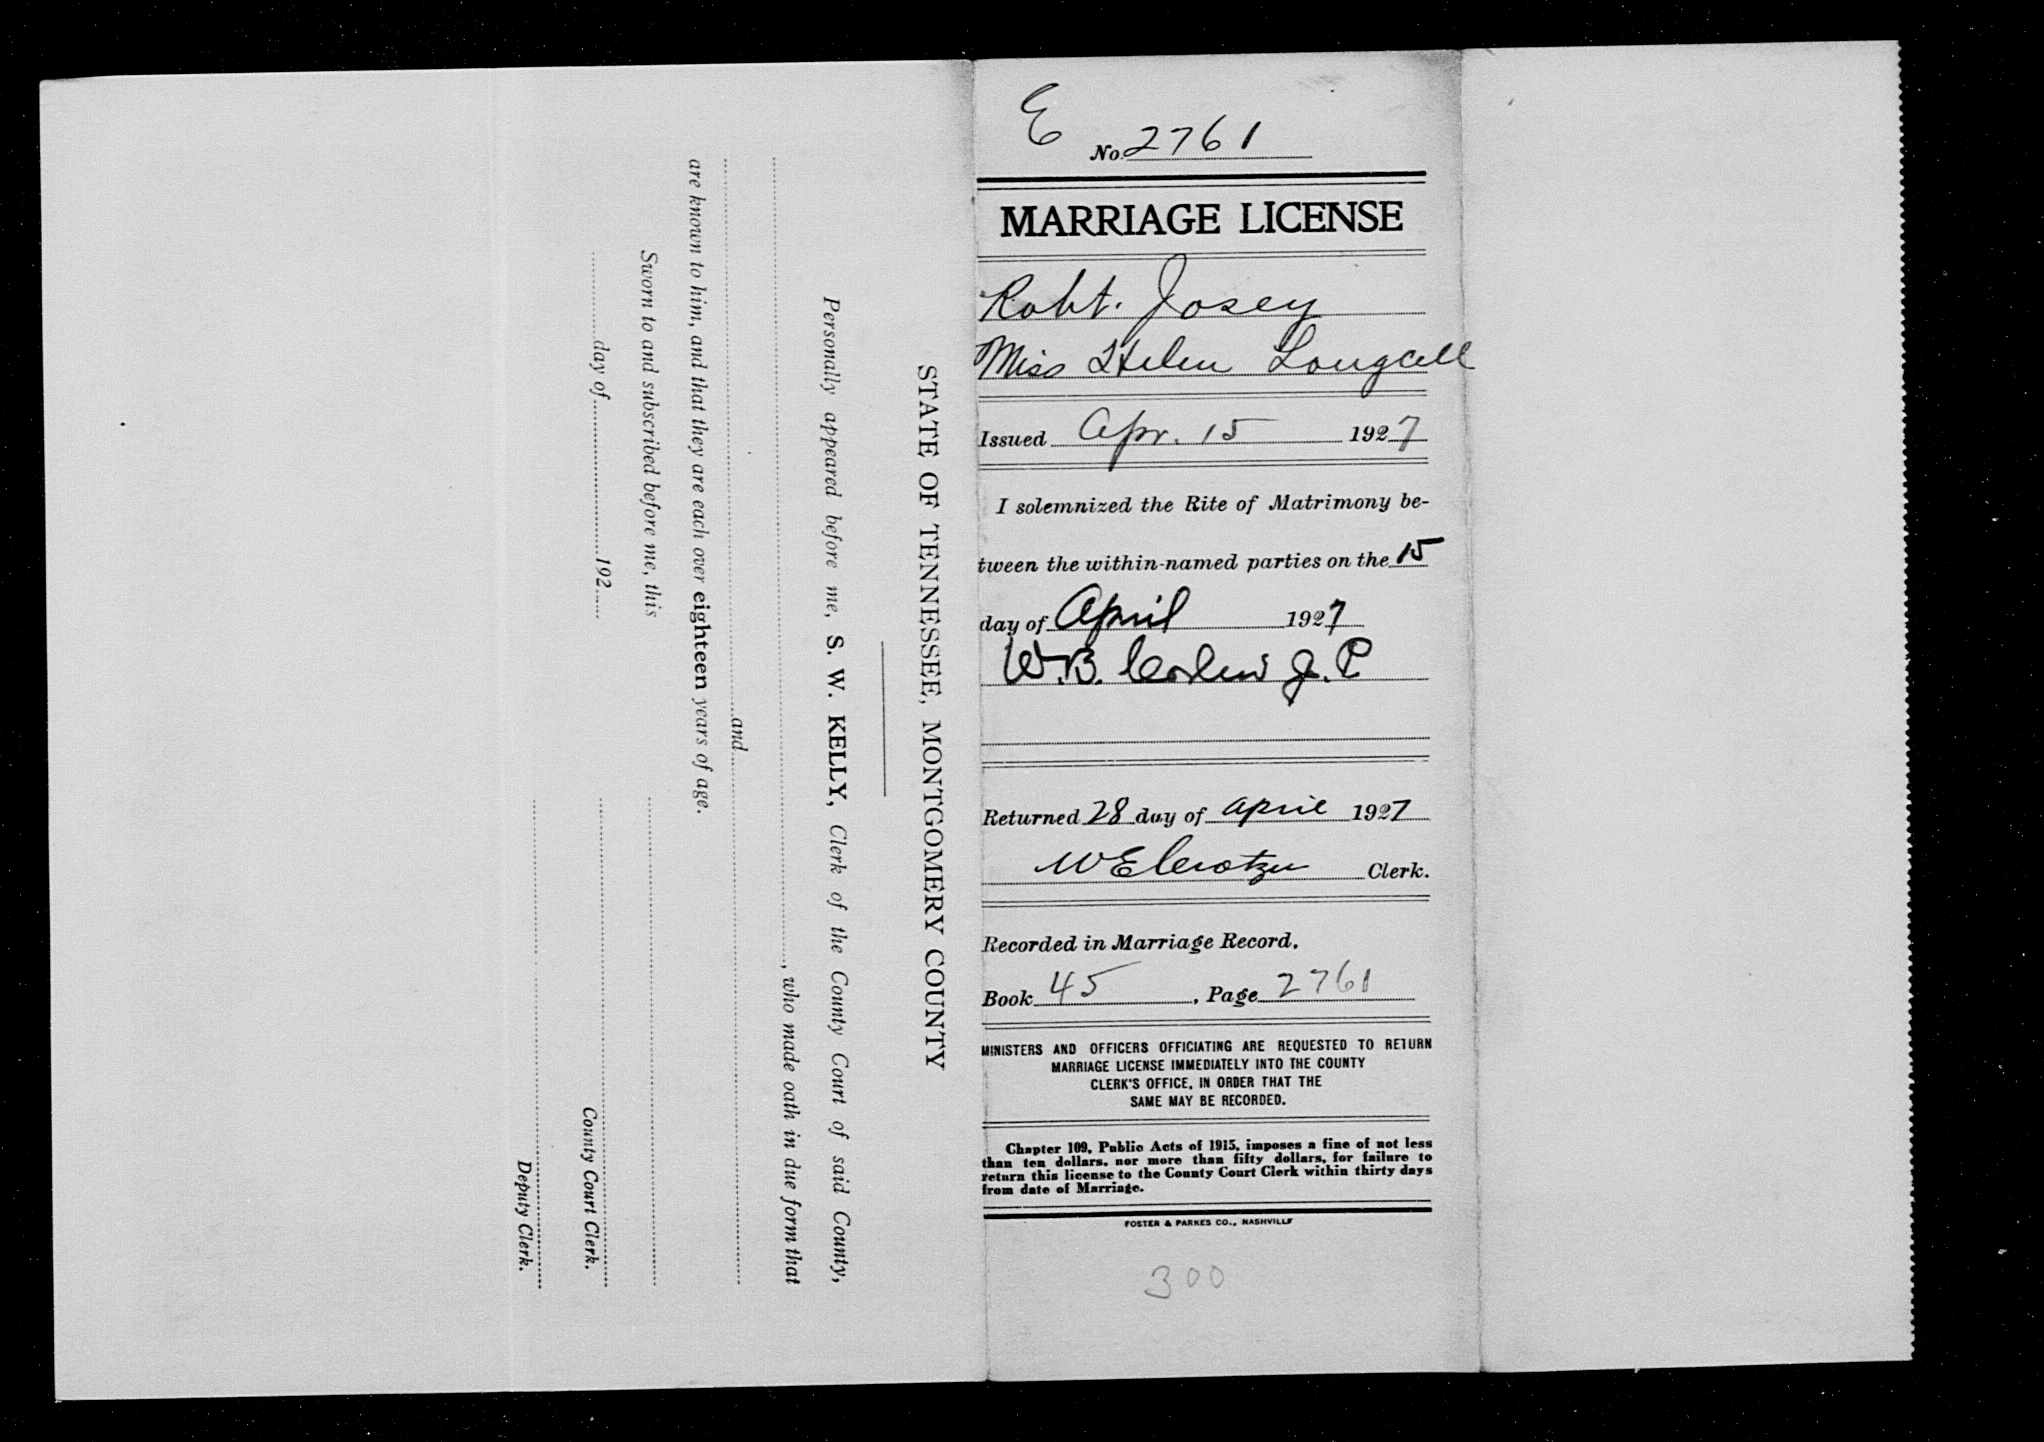 E
No. 2761
MARRIAGE LICENSE
Robt. Josey
Miss Helen Longcell
Issued Apr. 15 1927
I solemnized the Rite of Matrimony be-
tween the within-named parties on the 15
day of April 1927
W.B. J. P
Returned 28 day of April 1927
W E Crotzer Clerk.
Recorded in Marriage Record.
Book 45, Page 2761
MINISTERS AND OFFICERS OFFICIATING ARE REQUESTED TO RETURN
MARRIAGE LICENSE IMMEDIATELY INTO THE COUNTY
CLERK'S OFFICE, IN ORDER THAT THE
SAME MAY BE RECORDED.
Chapter 109, Public Acts of 1915, imposes a fine of not less
than ten dollars, nor more than fifty dollars, for failure to
return this license to the County Court Clerk within thirty days
from date of Marriage.
FOSTER & PARKES CO., NASHVILLE
300
STATE OF TENNESSEE, MONTGOMERY COUNTY
Personally appeared before me, S. W. KELLY, Clerk of the County Court of said County,
, who made oath in due form that
and
are known to him, and that they are each over eighteen years of age.
Sworn to and subscribed before me, this
day of 192
County Court Clerk.
Deputy Clerk.